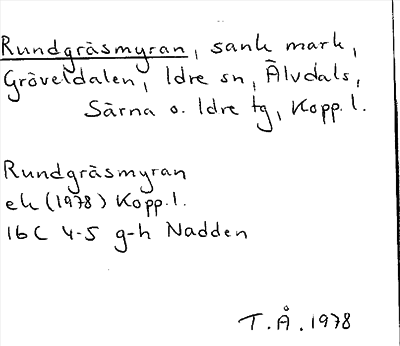 Rundgräsmyran, sank mark,
Gröveldalen, Idre sn, Älvdals,
Särna o. Idre tg, Kopp. l.
Rundgräsmyran
ek (1978) Kopp. l.
16C 4-5 g-h Nadden
T. Å. 1978